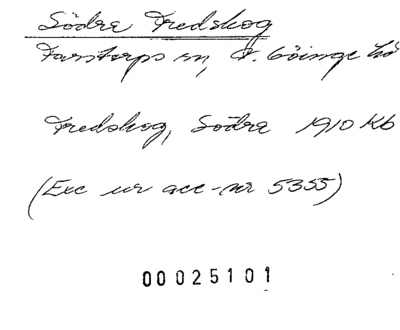 Södra Fredskog
Farstorps sn, V. Göinge hd
Fredskog, Södra 1910 Kb
(Exc ur acc-nr 5355)
00025101